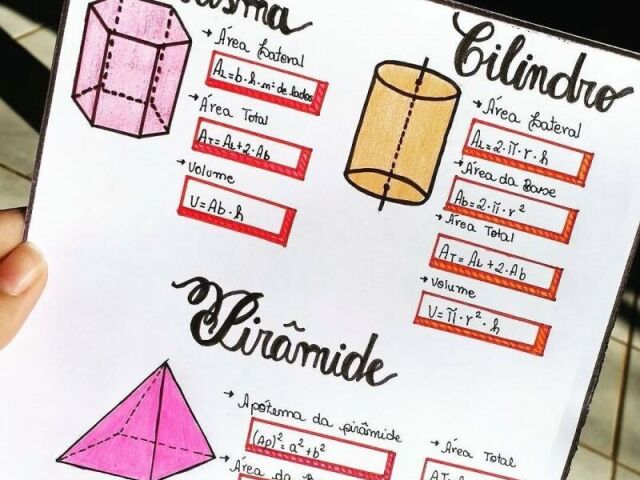 Prisma
→ Área Lateral
AL=b·h·nº de lados
→ Área Total
AT=AL+2·Ab
→ Volume
V=Ab·h
Cilindro
→ Área Lateral
AL=2·π·r·h
→ Área da Base
Ab=2·π·r²
→ Área Total
AT=AL+2·Ab
→ Volume
V=π·r²·h
Pirâmide
→ Apótema da pirâmide
(Ap)²=a²+b²
→ Área da
→ Área Total